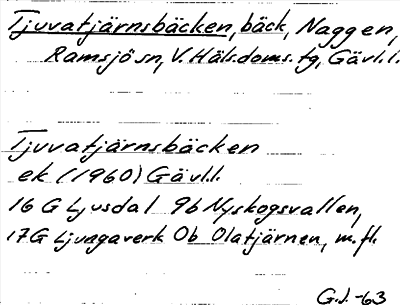 Tjuvatjärnsbäcken, bäck, Naggen,
Ramsjö sn, V. Häls. doms. tg, Gävl. l.
Tjuvatjärnsbäcken
ek (1960) Gävl. l.
16 G Ljusdal 9b Nyskogsvallen,
17G Ljungaverk 0b Olatjärnen, m. fl.
G.J.-63